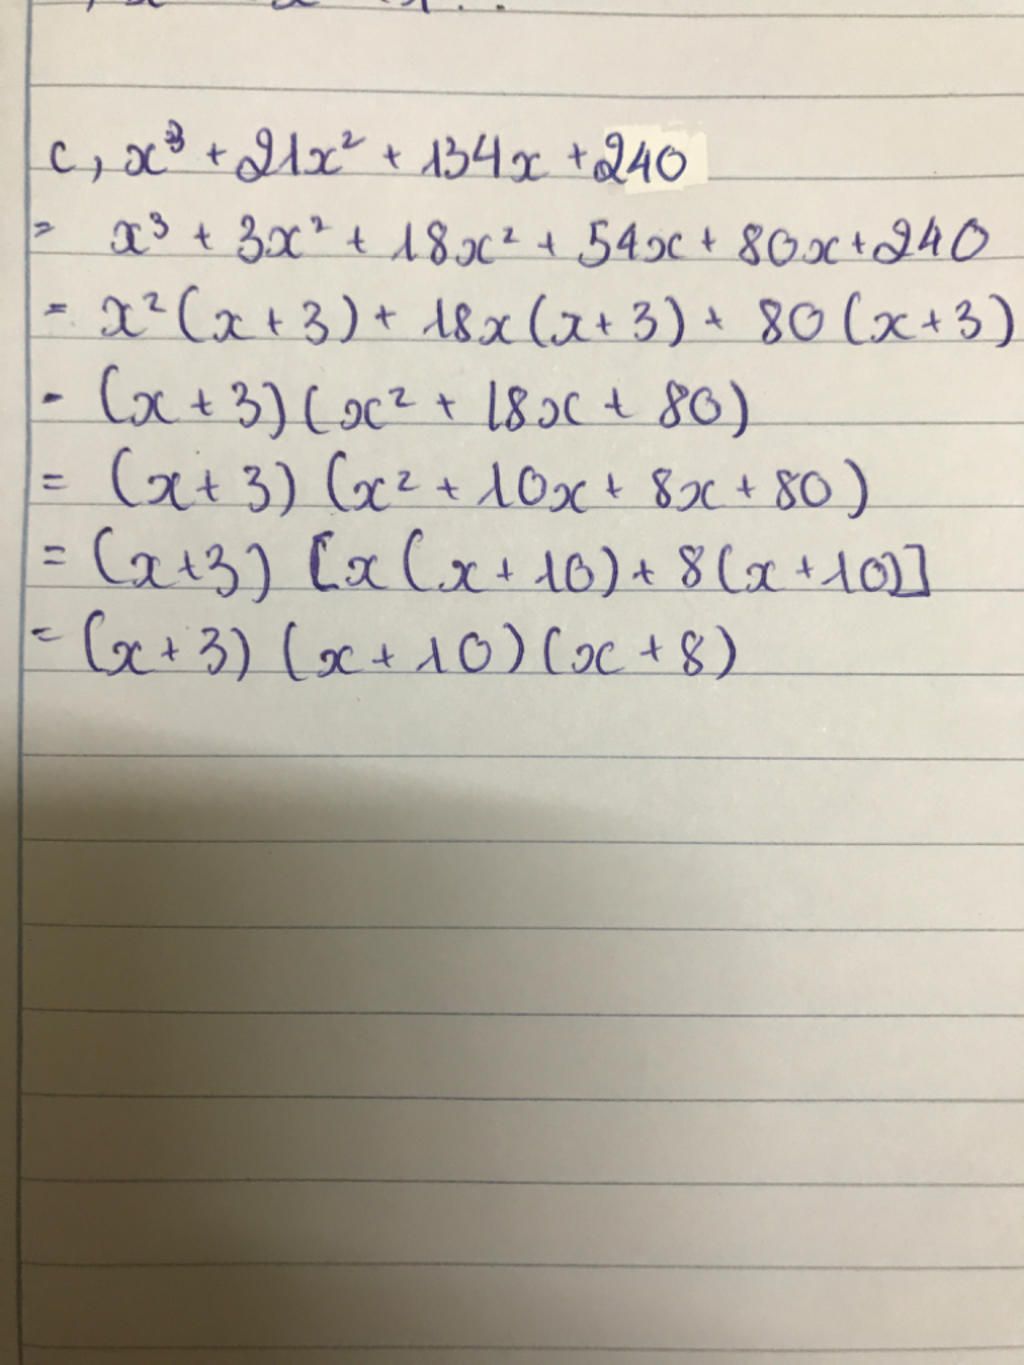 c, x³ + 21x² + 134x + 240
= x³ + 3x² + 18x² + 54x + 80x + 240
= x²(x + 3) + 18x(x + 3) + 80(x + 3)
- (x + 3)(x² + 18x + 80)
= (x + 3)(x² + 10x + 8x + 80)
= (x + 3) [x(x + 10) + 8(x + 10)]
= (x + 3)(x + 10)(x + 8)